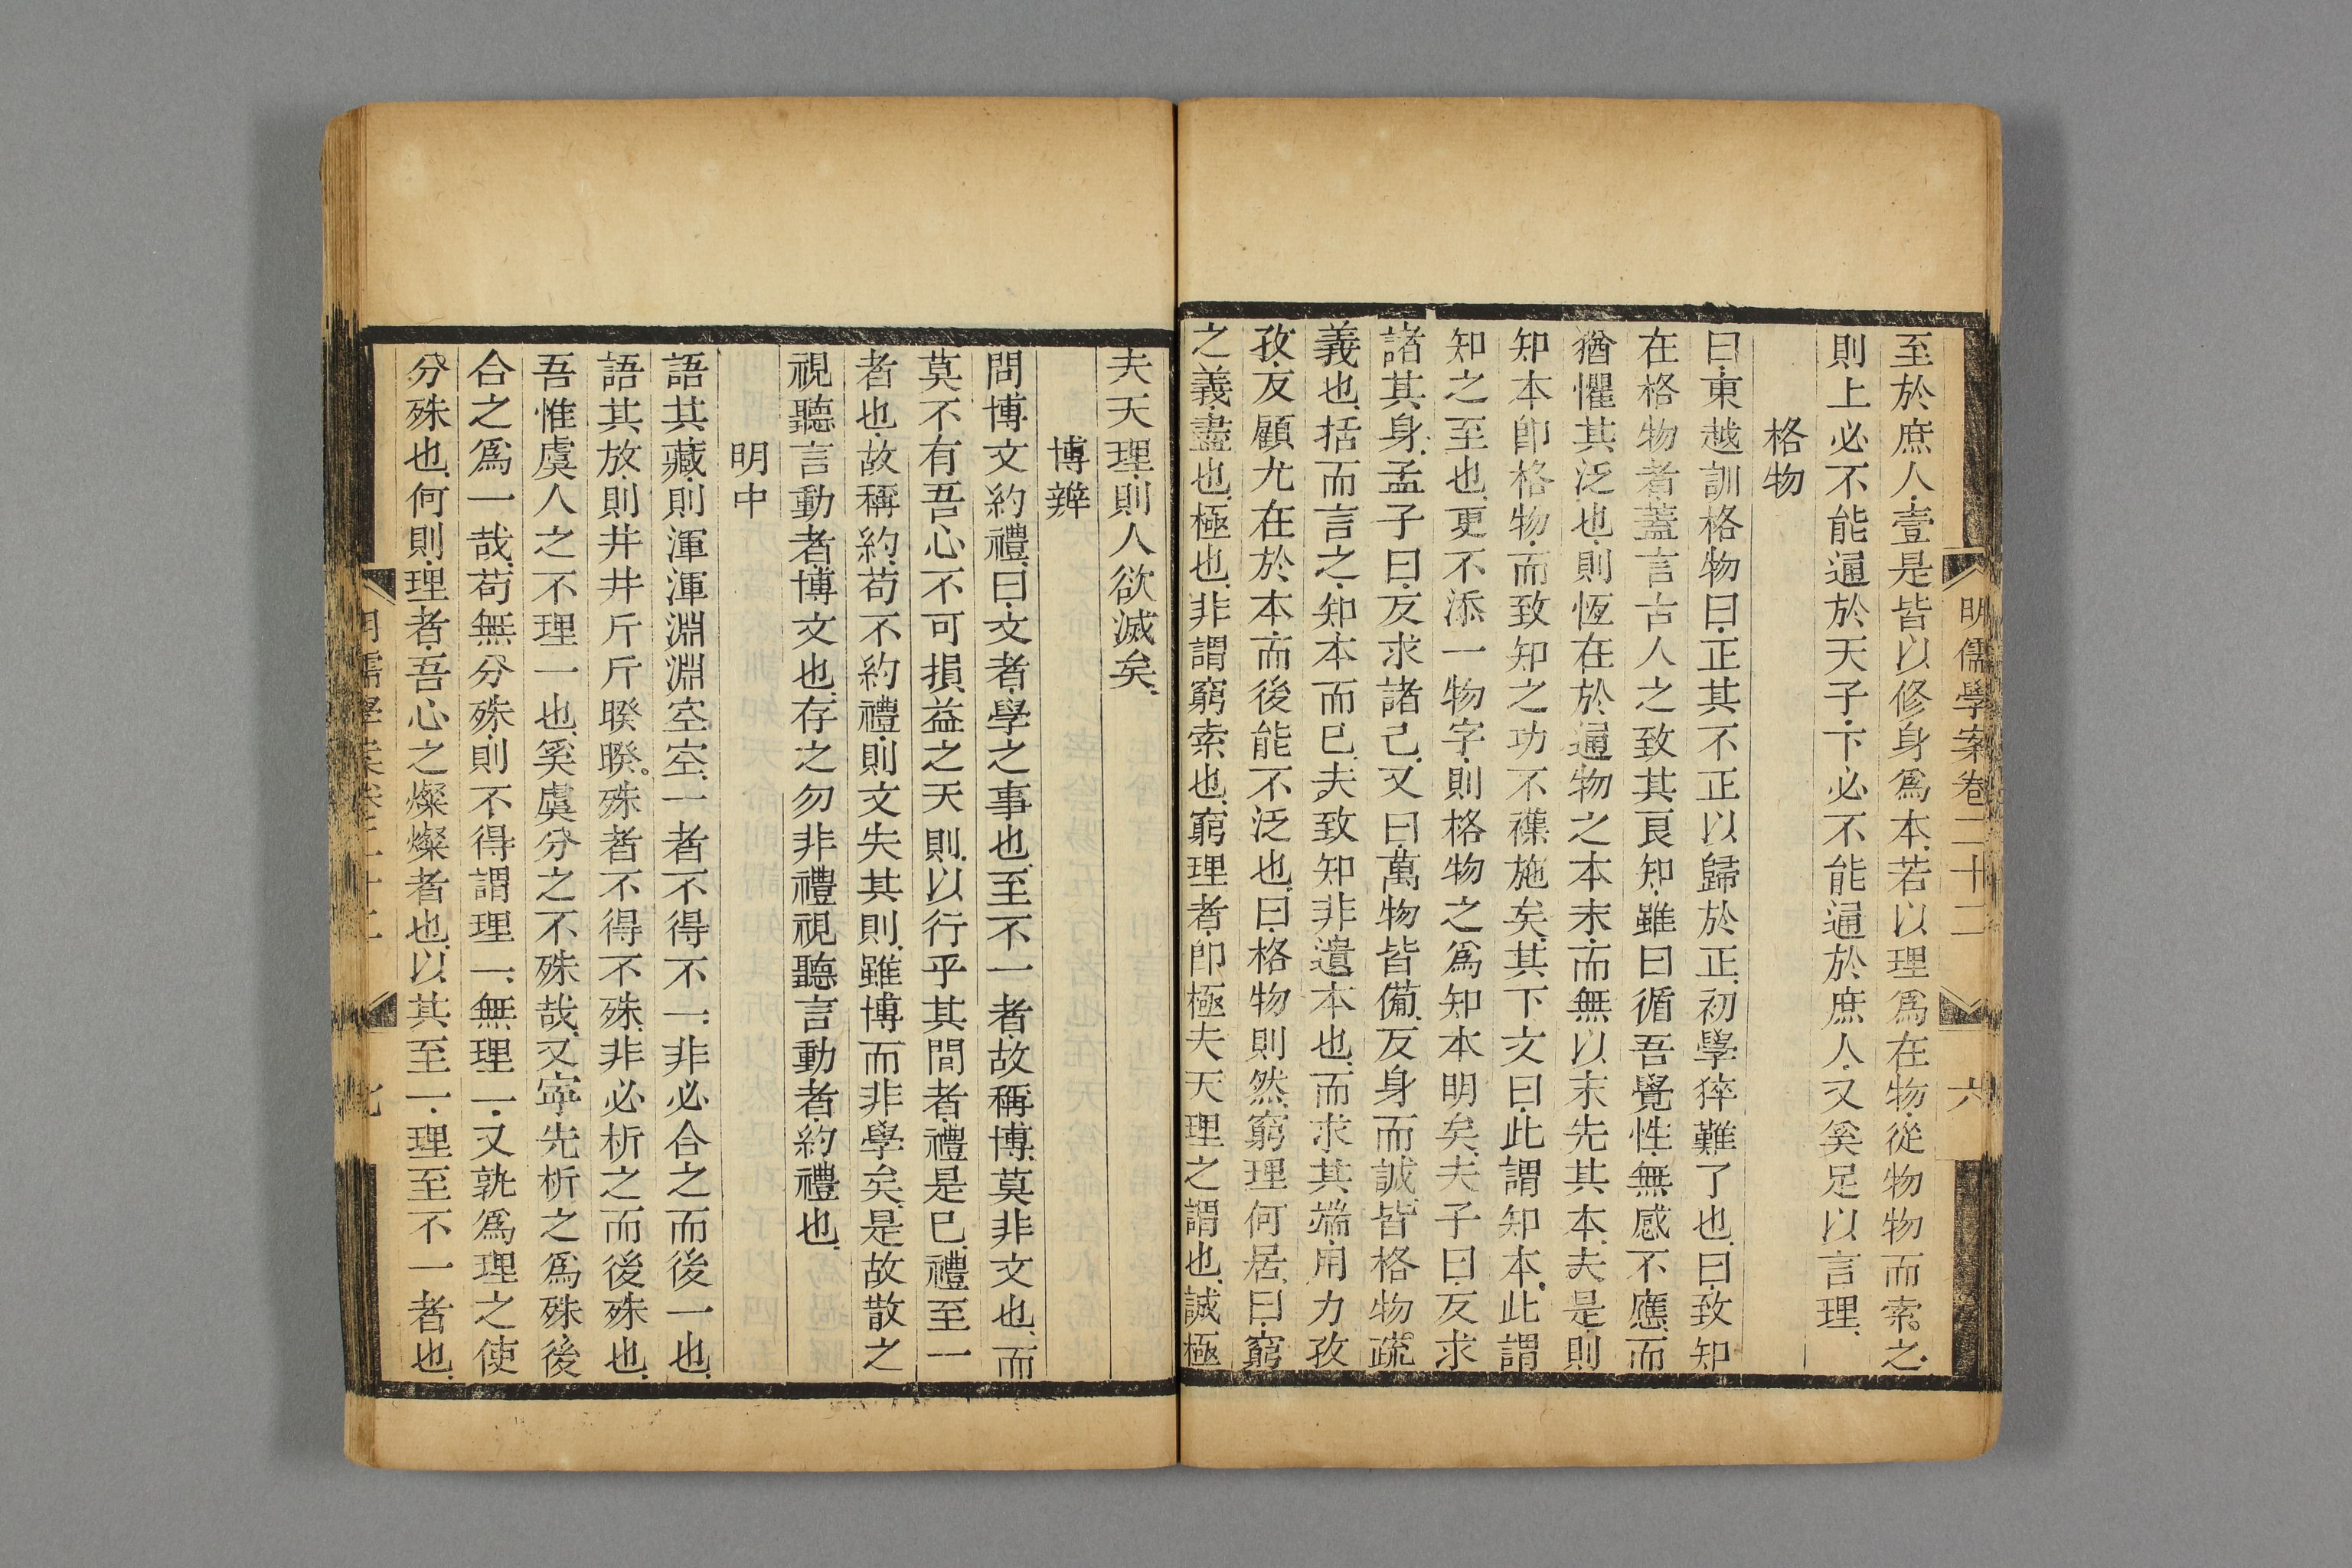 明儒學案卷二十二 六
至於庶人壹是皆以修身爲本若以理爲在物從物物而索之
則上必不能通於天子下必不能通於庶人又奚足以言理
格物
曰東越訓格物曰正其不正以歸於正初學猝難了也曰致知
在格物者蓋言古人之致其良知雖曰循吾覺性無感不應而
猶懼其泛也則恆在於通物之本末而無以末先其本夫是則
知本卽格物而致知之功不襍施矣其下文曰此謂知本此謂
知之至也更不添一物字則格物之爲知本明矣夫子曰反求
諸其身孟子曰反求諸己又曰萬物皆備反身而誠皆格物疏
義也括而言之知本而已夫致知非遺本也而求其端用力孜
孜反顧尤在於本而後能不泛也曰格物則然窮理何居曰窮
之義盡也極也非謂窮索也窮理者卽極夫天理之謂也誠極
夫天理則人欲滅矣
博辨
問博文約禮曰文者學之事也至不一者故稱博莫非文也而
莫不有吾心不可損益之天則以行乎其間者禮是已禮至一
者也故稱約苟不約禮則文失其則雖博而非學矣是故散之
視聽言動者博文也存之勿非禮視聽言動者約禮也
明中
語其藏則渾渾淵淵空空一者不得不一非必合之而後一也
語其放則井井斤斤睽睽殊者不得不殊非必析之而後殊也
吾惟虞人之不理一也奚虞分之不殊哉又寧先析之爲殊後
合之爲一哉苟無分殊則不得謂理一無理一又孰爲理之使
分殊也何則理者吾心之燦燦者也以其至一理至不一者也
明儒學案卷二十二 七